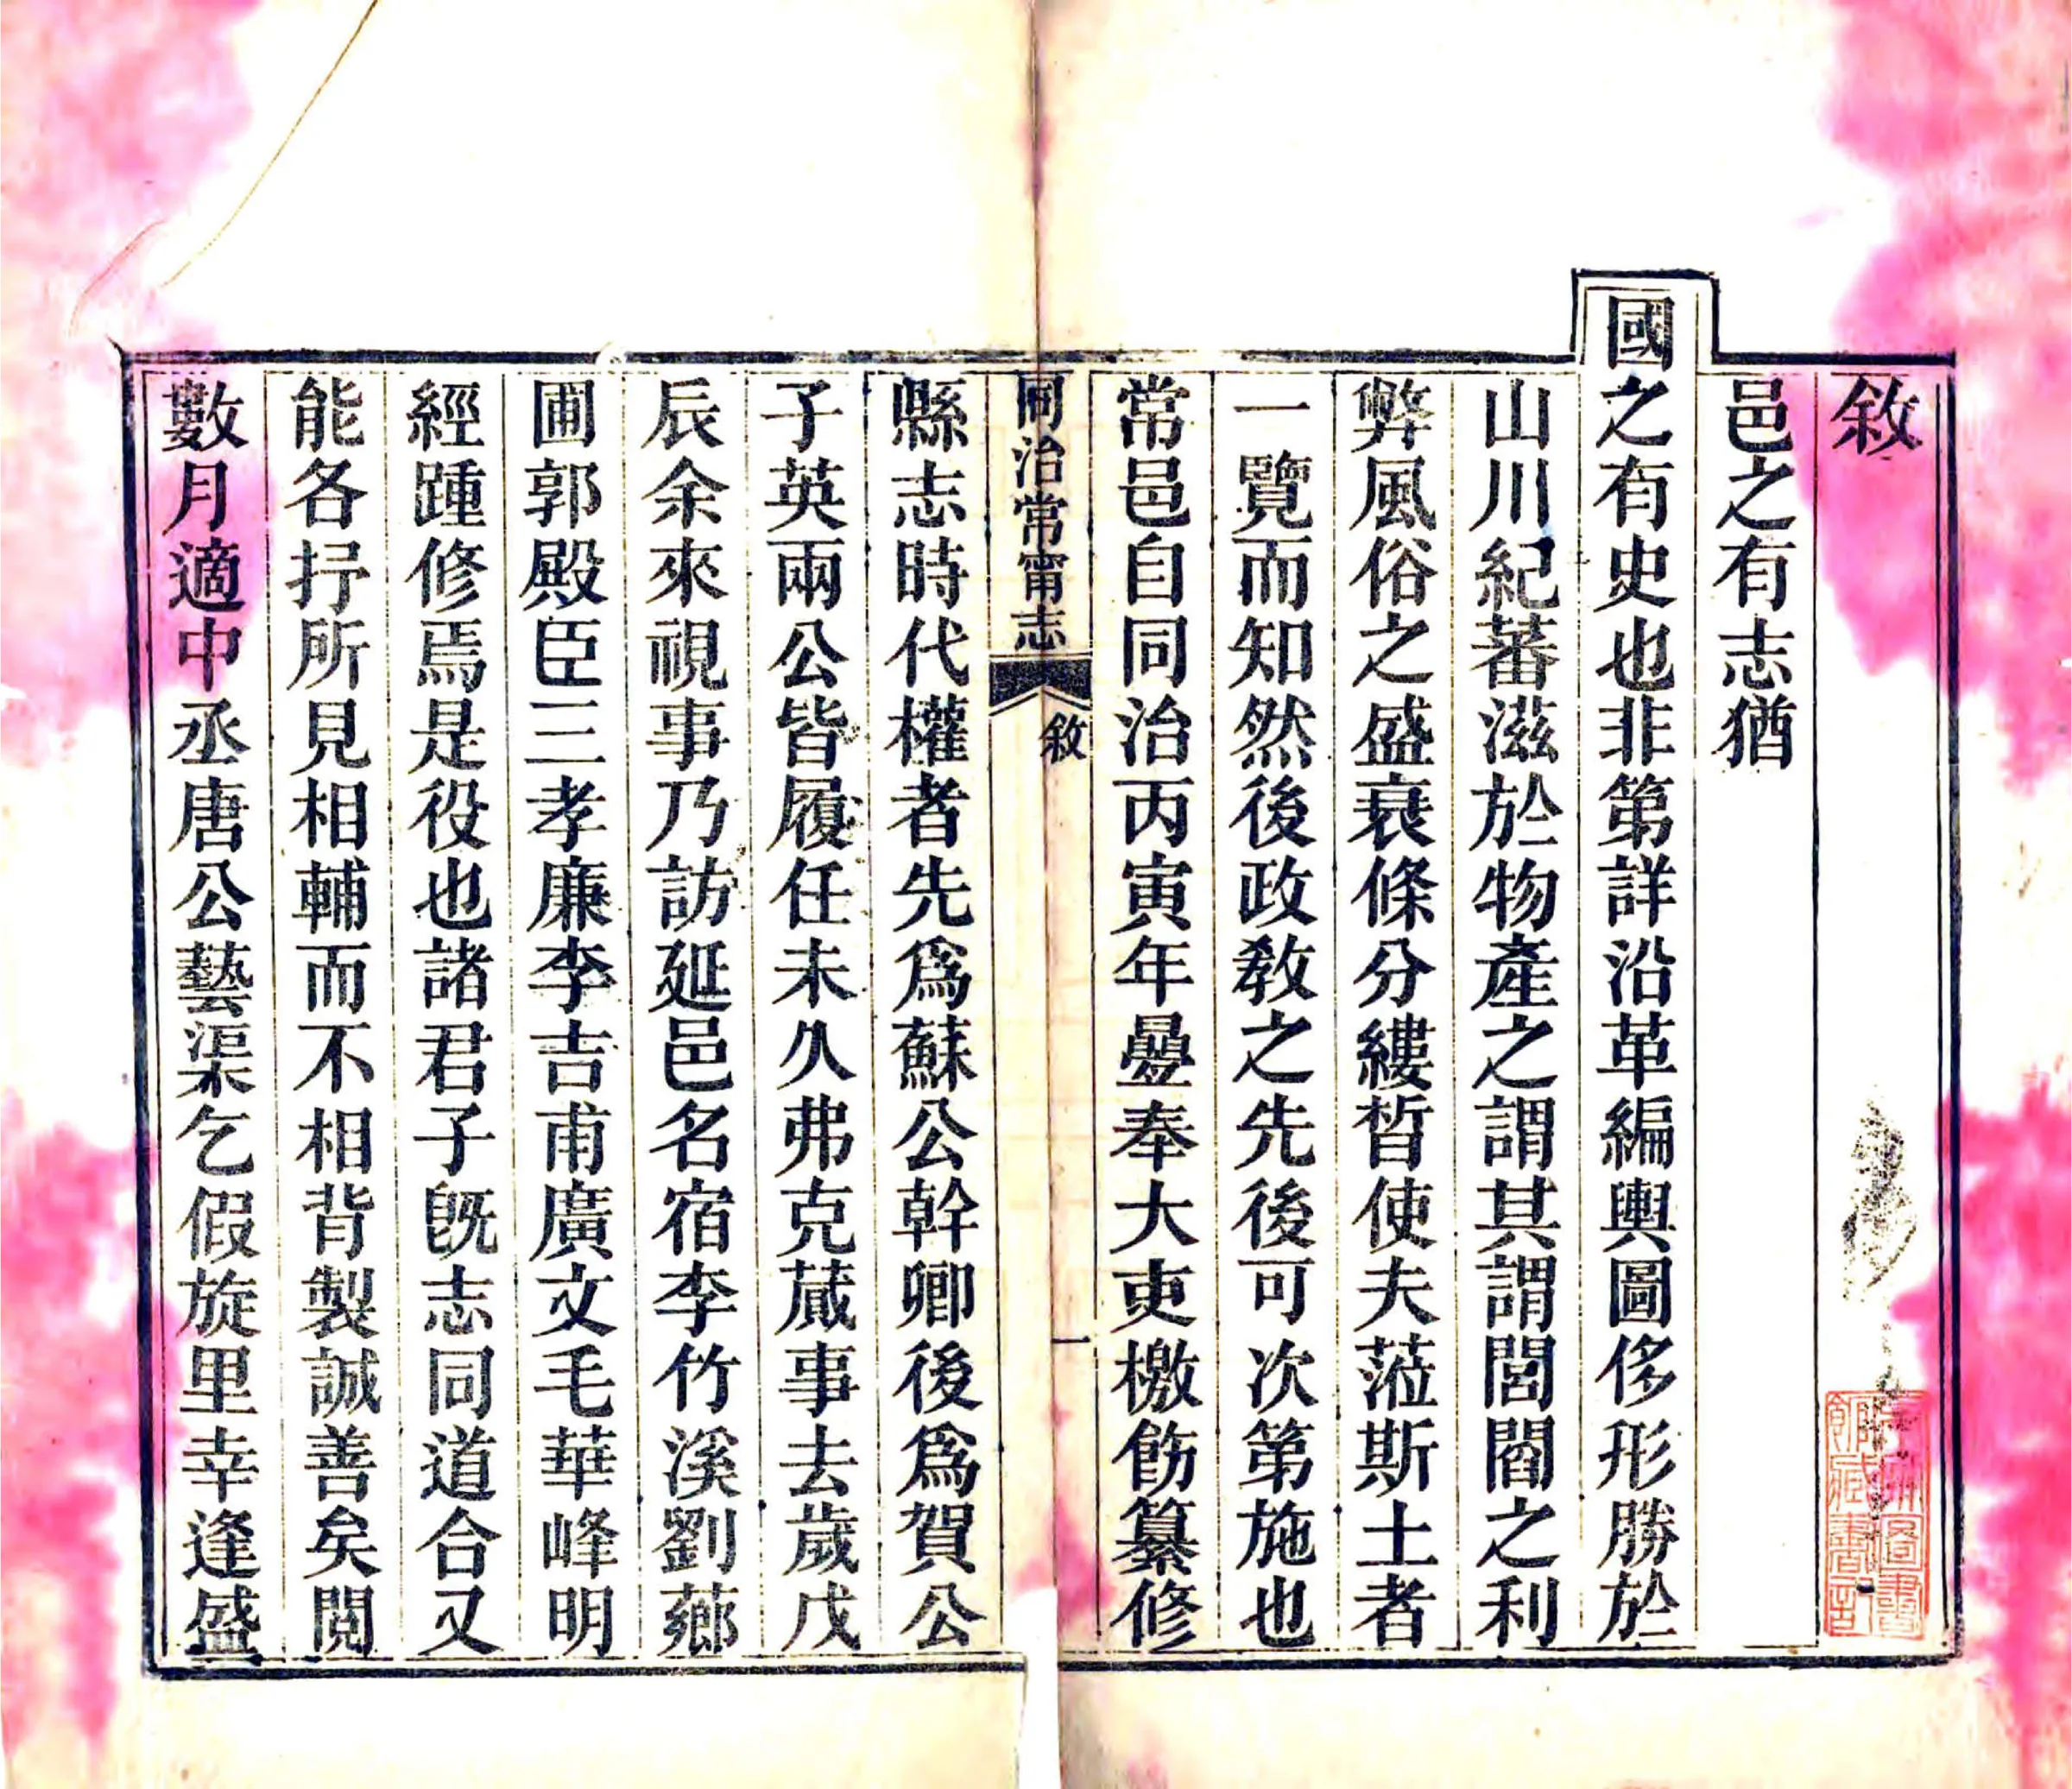 敘
邑之有志猶
國之有史也非第詳沿革編輿圖侈形勝於
山川紀蕃滋於物產之謂其謂閭閻之利
弊風俗之盛衰條分縷晳使夫蒞斯土者
一覽而知然後政教之先後可次第施也
常邑自同治丙寅年疉奉大吏檄飭纂修
同治常甯志
敘
一
縣志時代權者先爲蘇公幹卿後爲賀公
子英兩公皆履任未久弗克蕆事去歲戊
辰余來視事乃訪延邑名宿李竹溪劉薌
圃郭殿臣三孝廉李吉甫廣文毛華峰明
經踵修焉是役也諸君子旣志同道合又
能各抒所見相輔而不相背製誠善矣閱
數月適中丞唐公藝渠乞假旋里幸逢盛